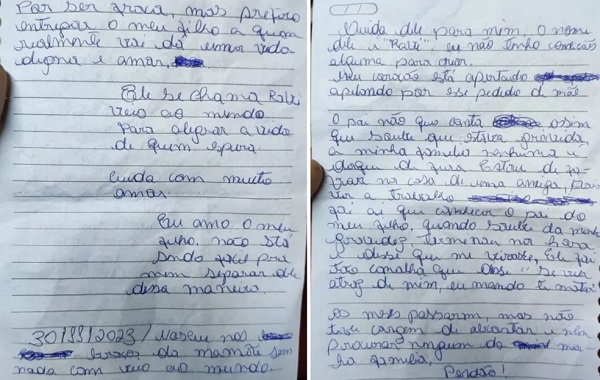 Por ser fraca, mas prefiro
entregar o meu filho a quem
realmente vai dá uma vida
digna e amar,
Ele se chama Ravi
veio ao mundo
Para alegrar a vida
de quem espera
Cuida com muito
amor.
Eu amo o meu
filho, não está
sendo fácil pra
mim separar dele
dessa maneira.
30/11/2023/ Nasceu nos
braços da mamãe sem
nada com veio ao mundo.
Cuida dele para mim, O nome
dele é "Ravi", eu não tenho condição
alguma para criar.
Meu coração está apertado
apitando por esse pedido de mãe
O pai não quis conta assim
que soube que estava grávida,
a minha família nenhuma é
daqui de Estou de fa-
na casa de uma amiga,
a trabalho
foi aí que conheci o pai do
meu filho, quando soube da minha
gravidez terminou na hora
e disse que me virasse, Ele foi
tão canalha que disse "Se vir
atrás de mim, eu mando te matar
Os meses passaram, mas não
tive coragem de abortar e nem
procurar ninguém da mi-
nha família,
Perdão!